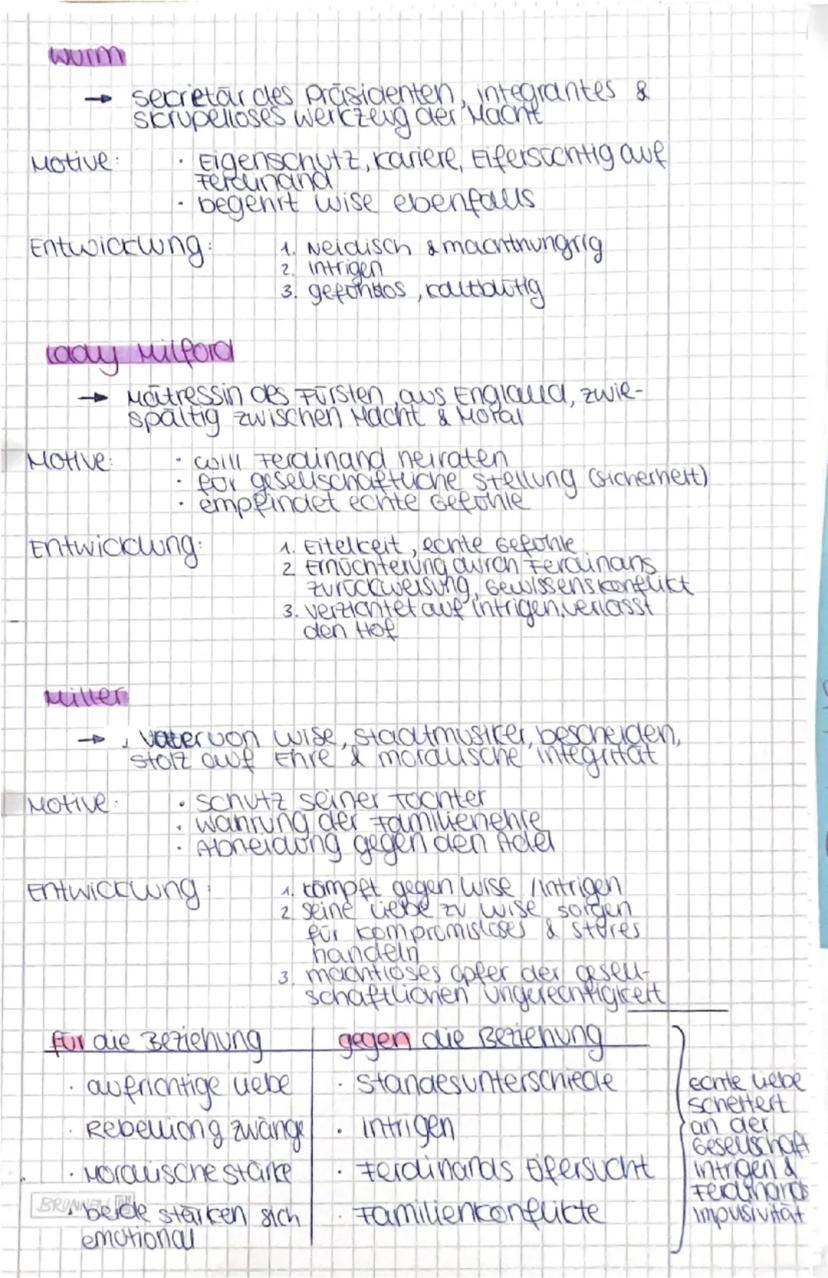 Wurm
→ Secretär des Präsidenten, integrantes &
skrupelloses Werkzeug der Macht
Motive: · Eigenschutz, Kariere, Eifersüchtig auf
Ferdinand
· begehrt Luise ebenfalls
Entwicklung: 1. Neidisch & machthungrig
2. Intrigen
3. gefühllos, kaltblütig
Lady Milford
→ Mätressin des Fürsten, aus England, zwie-
spältig zwischen Macht & Moral
Motive: · will Ferdinand heiraten
· für gesellschaftliche Stellung (Sicherheit)
· empfindet echte Gefühle
Entwicklung: 1. Eitelkeit, echte Gefühle
2 Ernüchterung durch Ferdinans
Zurückweisung, Gewissenskonflikt
3. verzichtet auf Intrigen, verlässt
den Hof
Miller
→ , Vater von Luise, Stadtmusiker, bescheiden,
stolz auf Ehre & moralische Integrität
Motive: · Schutz seiner Tochter
· Wahrung der Familienehre
· Abneidung gegen den Adel
Entwicklung: 1. kämpft gegen Luise / Intrigen
2 seine Liebe zu Luise, sorgen
für kompromisloses & steres
handeln
3. machtloses Opfer der gesell-
schaftlichen Ungerechtigkeit
für die Beziehung gegen die Beziehung
· aufrichtige Liebe · Standesunterschiede
· Rebellion g zwänge · Intrigen
· Moralische stärke · Ferdinands Eifersucht
· beide stärken sich · Familienkonflikte
emotional
echte Liebe
scheitert
an der
Gesellschaft
Intrigen &
Ferdinands
Impusivität
BRUNNEN